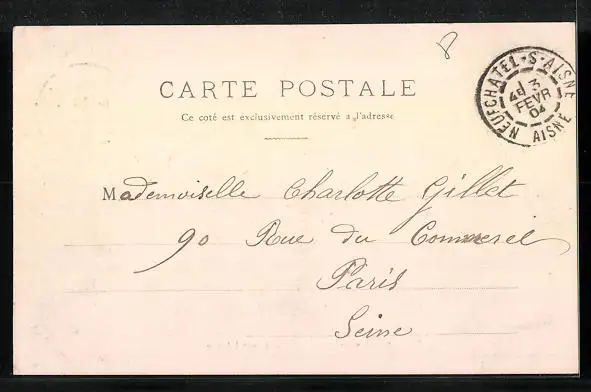 CARTE POSTALE
Ce coté est exclusivement réservé a l'adresse
NEUFCHATEL-S-AISNE
4E 3
FEVR
04
AISNE
8
Mademoiselle Charlotte Gillet
90 Rue du Commerce
Paris
Seine